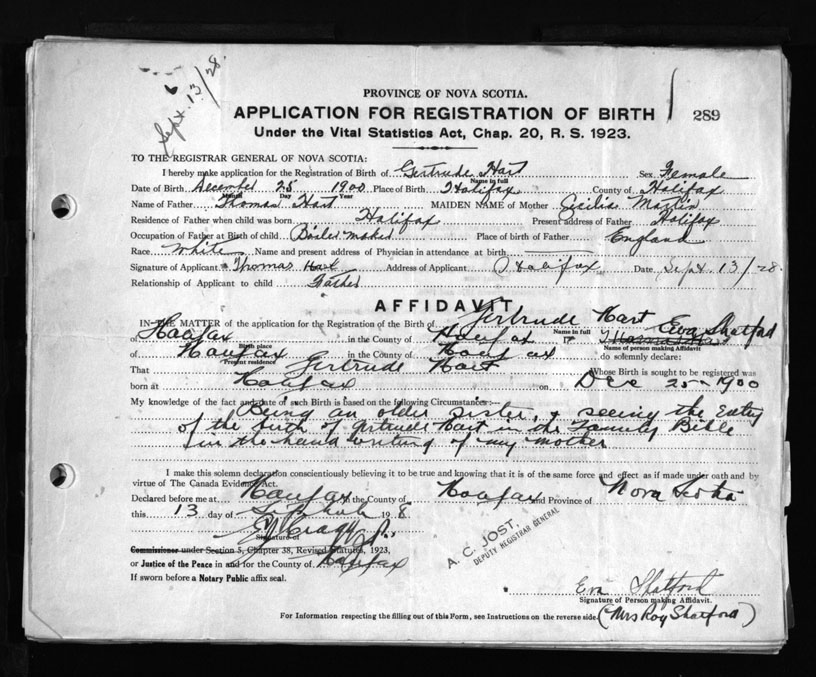 Sept. 13/28.
PROVINCE OF NOVA SCOTIA.
APPLICATION FOR REGISTRATION OF BIRTH
289
Under the Vital Statistics Act, Chap. 20, R. S. 1923.
TO THE REGISTRAR GENERAL OF NOVA SCOTIA:
I hereby make application for the Registration of Birth of Gertrude Hart Sex Female
Name in full
Date of Birth December 25 1900 Place of Birth Halifax County of Halifax
Month Day Year
Name of Father Thomas Hart MAIDEN NAME of Mother Cecilia Martin
Residence of Father when child was born Halifax Present address of Father Halifax
Occupation of Father at Birth of child Boiler maker Place of birth of Father England
Race White Name and present address of Physician in attendance at birth
Signature of Applicant Thomas Hart Address of Applicant Halifax Date Sept 13/28.
Relationship of Applicant to child Father
AFFIDAVIT
IN THE MATTER of the application for the Registration of the Birth of Gertrude Hart
Name in full
of Halifax in the County of Halifax Eva Shatford
Birth place
Name of person making Affidavit
of Halifax in the County of Halifax do solemnly declare:
Present residence
That Gertrude Hart Whose Birth is sought to be registered was
born at Halifax on Dec 25 - 1900
My knowledge of the fact and date of such Birth is based on the following Circumstances:
Being an older sister, & seeing the Entry
of the birth of Gertrude Hart in the Family Bible
in the hand writing of my mother
I make this solemn declaration conscientiously believing it to be true and knowing that it is of the same force and effect as if made under oath and by
virtue of The Canada Evidence Act.
Declared before me at Halifax in the County of Halifax and Province of Nova Scotia
this 13 day of September 1928
Signature of
Commissioner under Section 5, Chapter 38, Revised Statutes, 1923,
or Justice of the Peace in and for the County of Halifax
If sworn before a Notary Public affix seal.
A. C. JOST.
DEPUTY REGISTRAR GENERAL
Eva Shatford
Signature of Person making Affidavit.
For Information respecting the filling out of this Form, see Instructions on the reverse side.
(Mrs Roy Shatford)